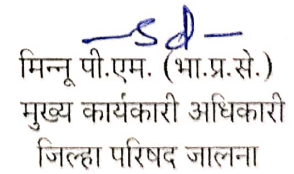 sd
मिन्नू पी.एम. (भा.प्र.से.)
मुख्य कार्यकारी अधिकारी
जिल्हा परिषद जालना